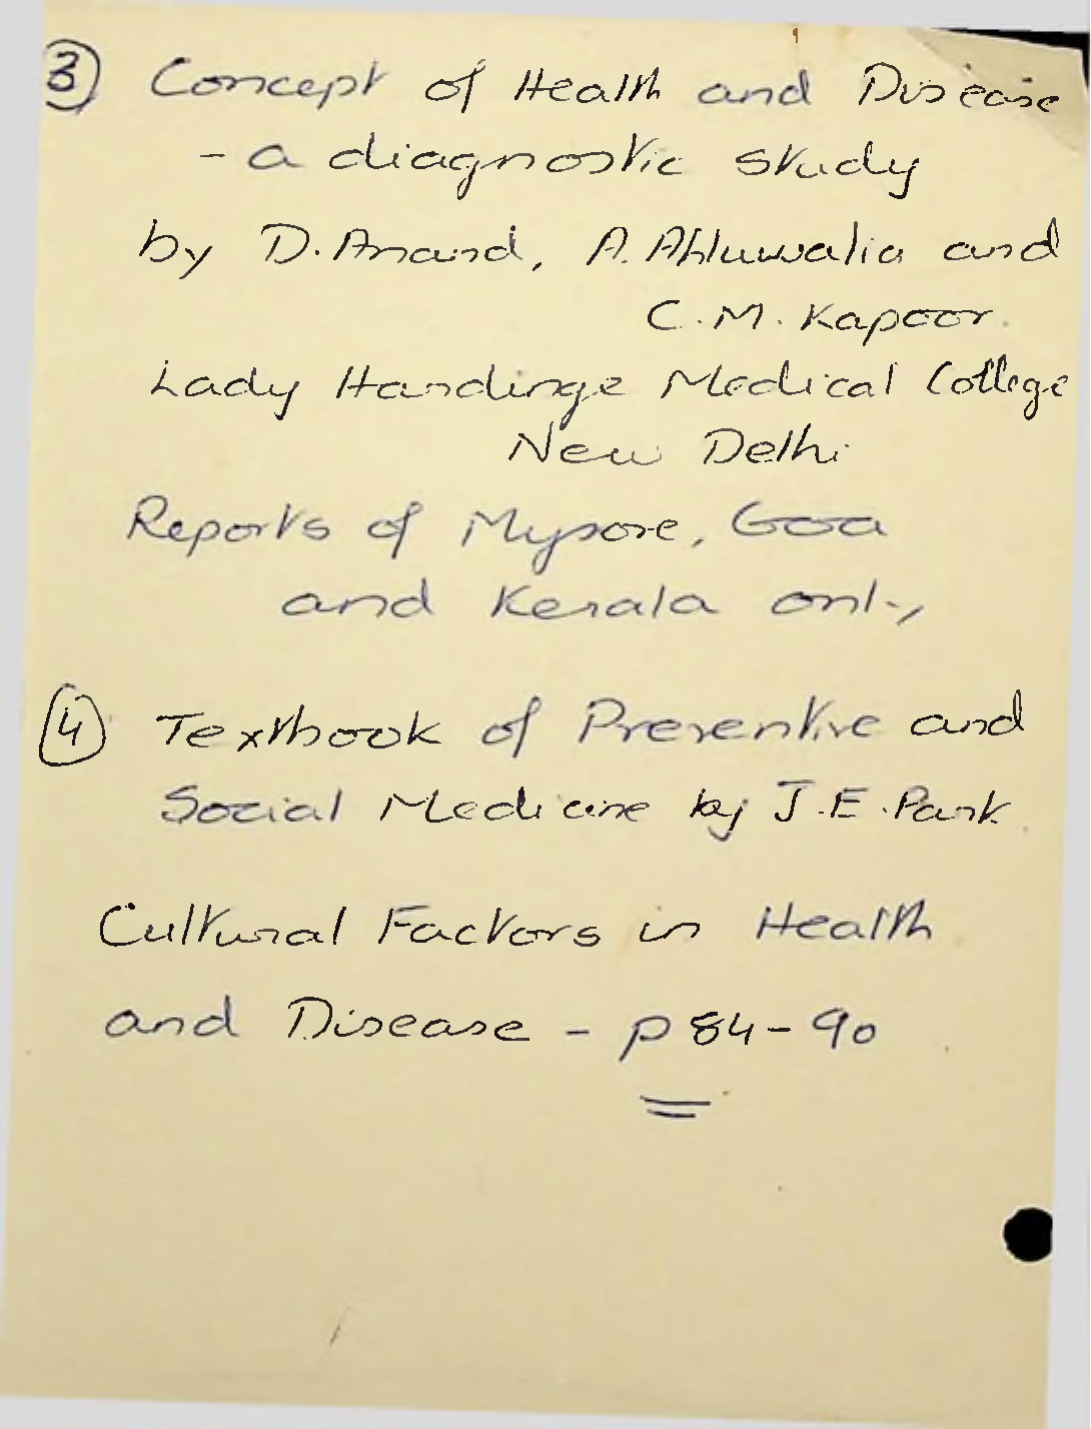 ③ Concept of Health and Disease
- a diagnostic study
by D. Anand, A. Ahluwalia and
C.M. Kapoor.
Lady Hardinge Medical College
New Delhi
Reports of Mysore, Goa
and Kerala only
④ Textbook of Preventive and
Social Medicine by J.E. Park.
Cultural Factors in Health
and Disease - p 84-90